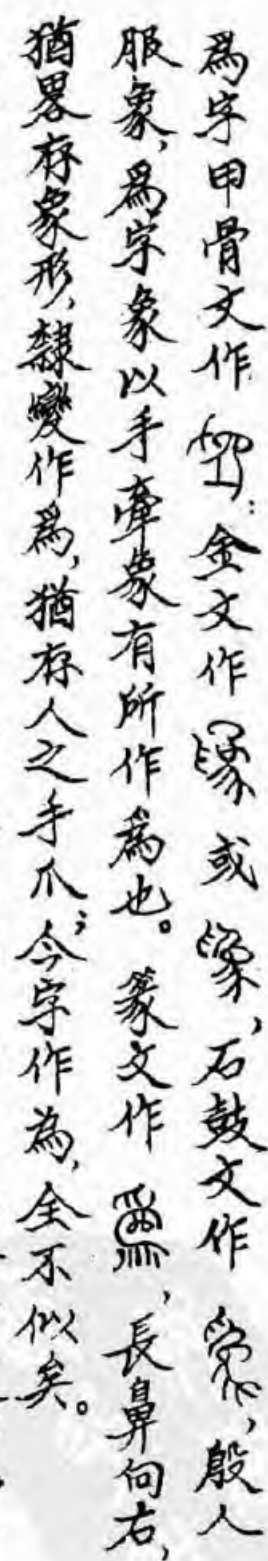 爲字甲骨文作；金文作或，石鼓文作，殷人
服象，爲字象以手牽象有所作爲也。篆文作，長鼻向右，
猶畧存象形，隸變作爲，猶存人之手爪；今字作為，全不似矣。